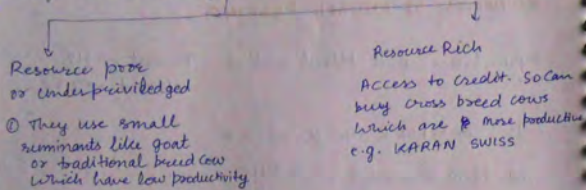 Resource poor
or underpriviledged
① They use small
ruminants like goat
or traditional breed cow
which have low productivity
Resource Rich
Access to credit. So can
buy cross breed cows
which are more productive
e.g. KARAN SWISS